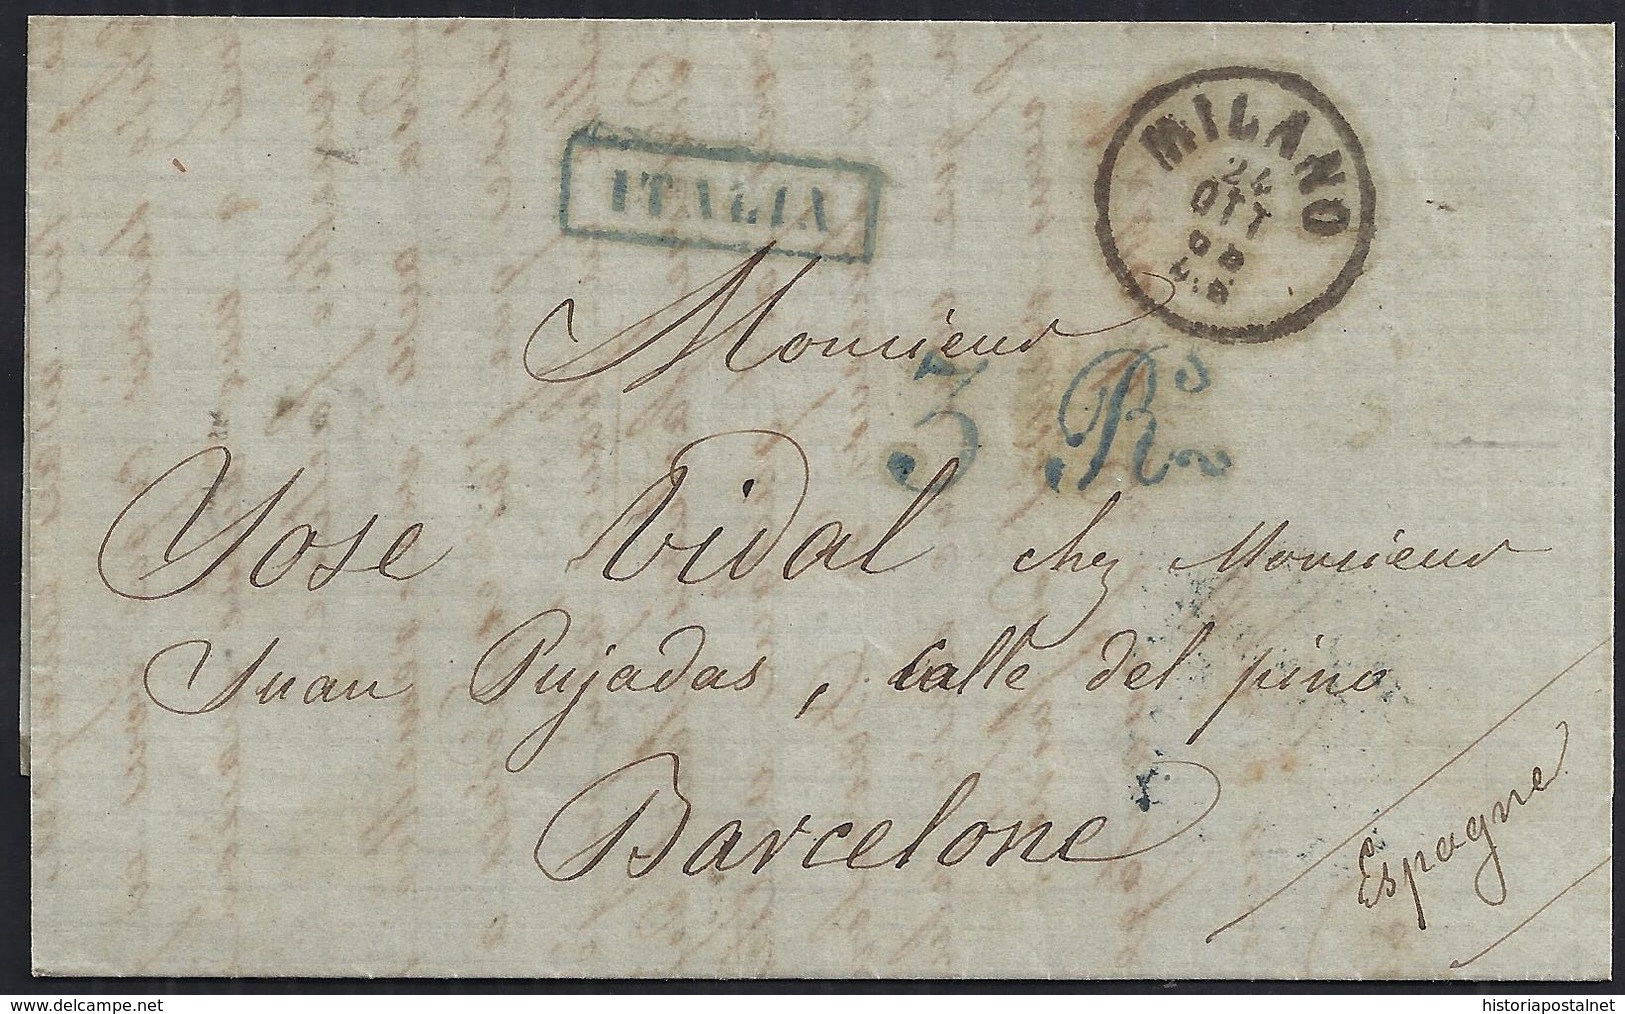 MILANO
24
OTT
ITALIA
Monsieur
3 Rs.
Yose Vidal chez Monsieur
Juan Pujadas, calle del pino
Barcelone
Espagne
www.delcampe.net
historiapostalnet